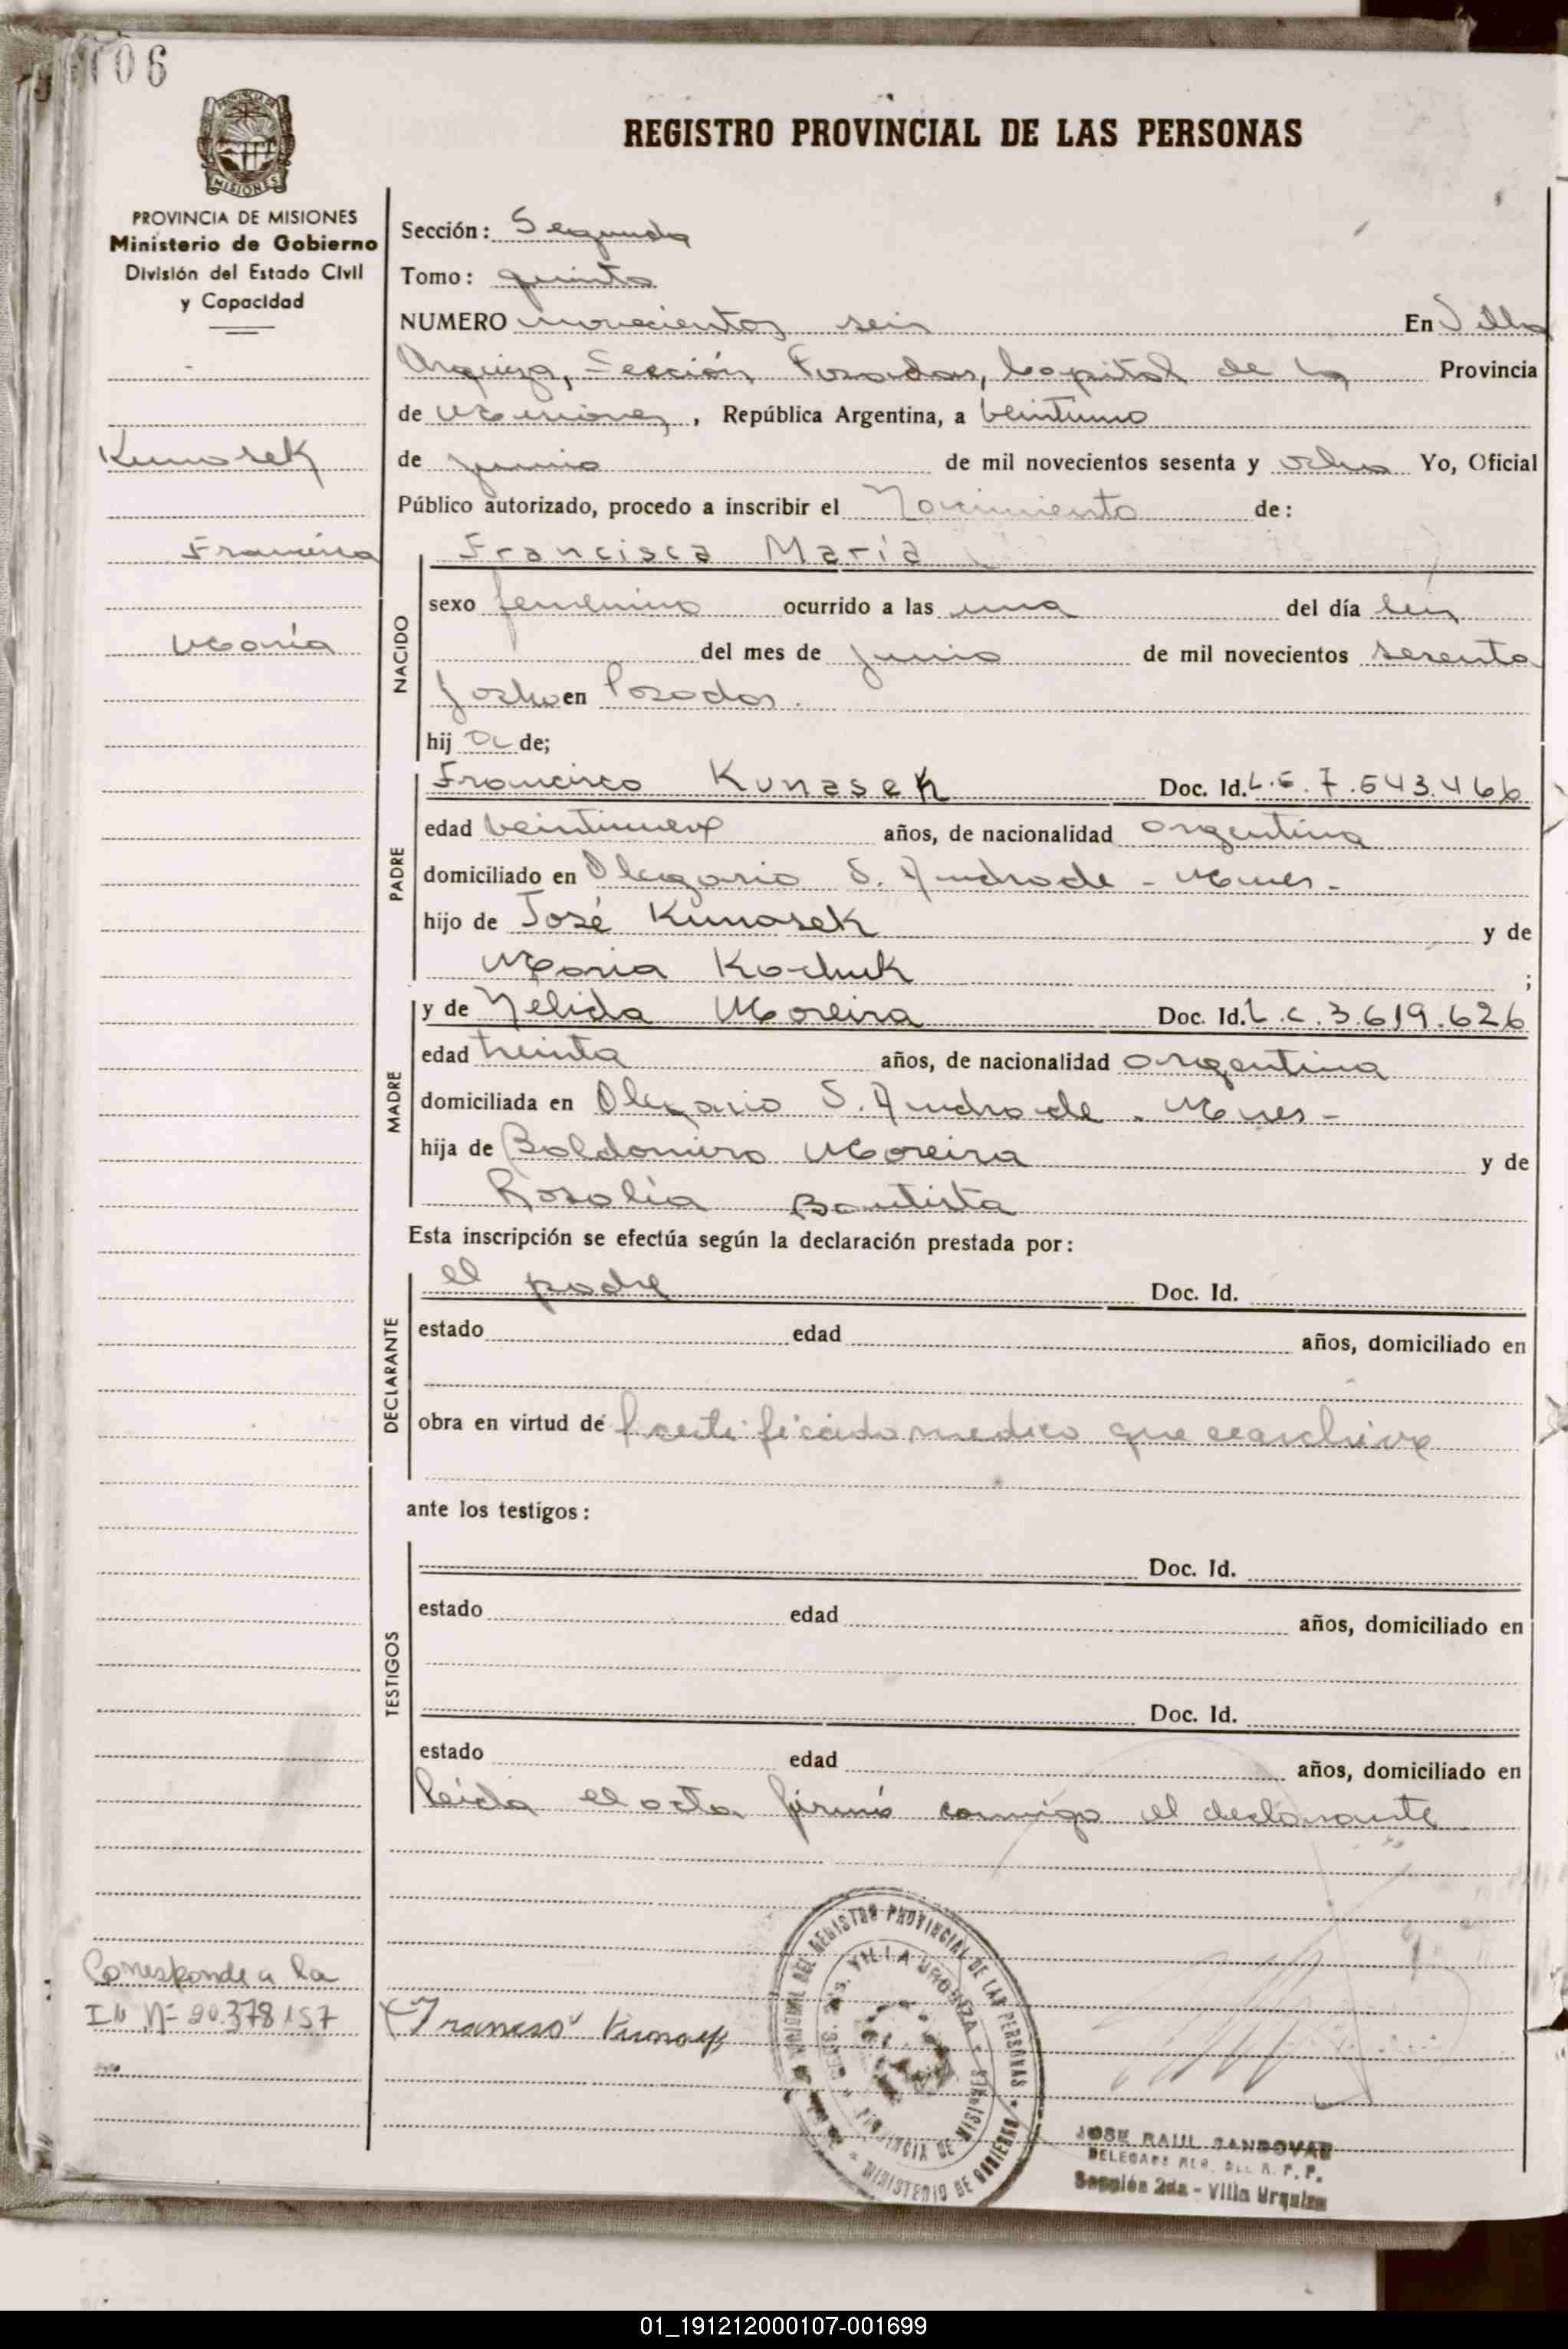 906
REGISTRO PROVINCIAL DE LAS PERSONAS
PROVINCIA DE MISIONES
Ministerio de Gobierno
División del Estado Civil
y Capacidad
Kunasek
Francisca
María
Sección: Segunda
Tomo: quinto
NUMERO novecientos seis En Villa
Urquiza, Sección Posadas, Capital de la Provincia
de Misiones, República Argentina, a veintiuno
de junio de mil novecientos sesenta y ocho Yo, Oficial
Público autorizado, procedo a inscribir el Nacimiento de:
NACIDO
Francisca María
sexo femenino ocurrido a las una del día
del mes de junio de mil novecientos sesenta
y ocho en Posadas.
hij a de;
PADRE
Francisco Kunasek Doc. Id. L.E. 7.543.466
edad veintinueve años, de nacionalidad argentina
domiciliado en Olegario S. Andrade - Mnes.
hijo de José Kunasek y de
María Kochuk ;
MADRE
y de Nélida Moreira Doc. Id. L.C. 3.619.626
edad treinta años, de nacionalidad argentina
domiciliada en Olegario S. Andrade - Mnes -
hija de Baldomiro Moreira y de
Rosalía Bautista
Esta inscripción se efectúa según la declaración prestada por:
DECLARANTE
el padre Doc. Id.
estado edad años, domiciliado en
obra en virtud de certificado medico que se archiva
ante los testigos:
TESTIGOS
Doc. Id.
estado edad años, domiciliado en
Doc. Id.
estado edad años, domiciliado en
leída el acta firmó conmigo el declarante
Corresponde a la
Nº 20.378.157
Francisco Kunasek
REGISTRO PROVINCIAL DE LAS PERSONAS
MINISTERIO DE GOBIERNO
VILLA URQUIZA
PROVINCIA DE MISIONES
JOSE RAUL SANDOVAL
R. P. P.
Sección 2da - Villa Urquiza
01_191212000107-001699